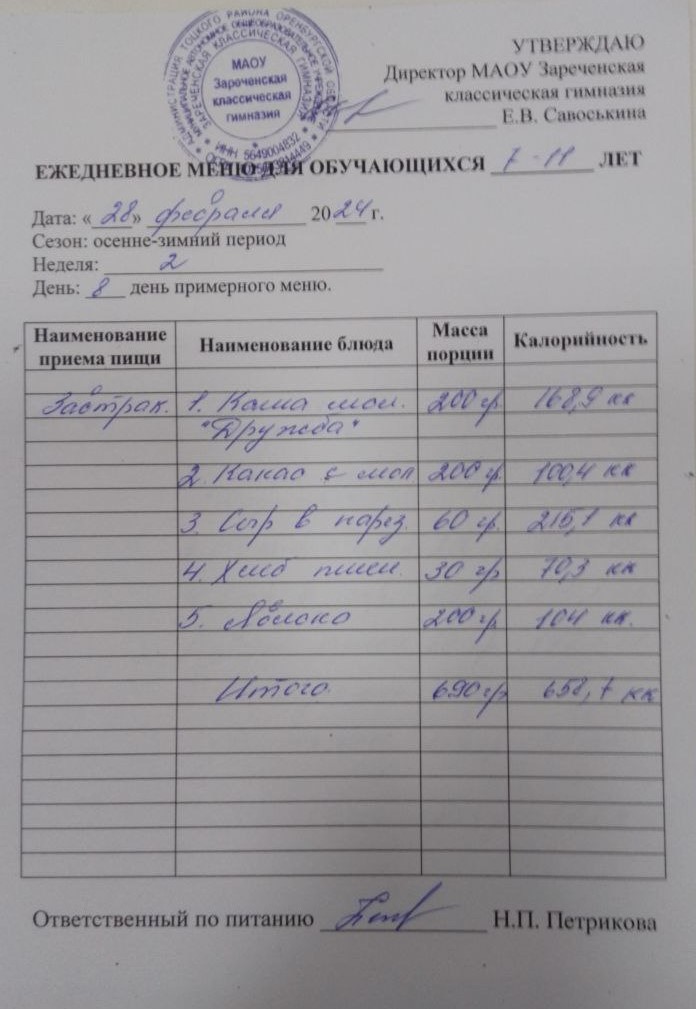 АДМИНИСТРАЦИЯ ТОЦКОГО РАЙОНА ОРЕНБУРГСКОЙ ОБЛАСТИ
МУНИЦИПАЛЬНОЕ АВТОНОМНОЕ ОБЩЕОБРАЗОВАТЕЛЬНОЕ УЧРЕЖДЕНИЕ
ЗАРЕЧЕНСКАЯ КЛАССИЧЕСКАЯ ГИМНАЗИЯ
МАОУ
Зареченская
классическая
гимназия
ИНН 5649004832
УТВЕРЖДАЮ
Директор МАОУ Зареченская
классическая гимназия
Е.В. Савоськина
ЕЖЕДНЕВНОЕ МЕНЮ ДЛЯ ОБУЧАЮЩИХСЯ 7-11 ЛЕТ
Дата: «28» февраля 2024 г.
Сезон: осенне-зимний период
Неделя: 2
День: 8 день примерного меню.
Наименование приема пищи Наименование блюда Масса порции Калорийность
Завтрак. 1. Каша мол. 200 гр 168,9 кк
"Дружба"
2. Какао с мол 200 гр. 100,4 кк
3. Сыр в нарез. 60 гр. 215,1 кк
4. Хлеб пшен. 30 гр 70,3 кк
5. Яблоко 200 гр 104 кк.
Итого 690 гр 658,7 кк
Ответственный по питанию Н.П. Петрикова